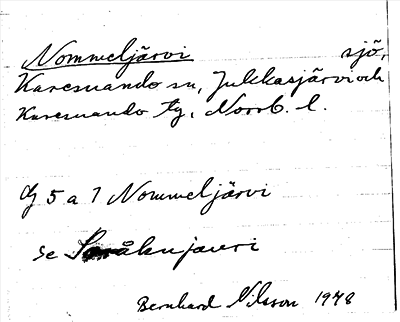 Nommeljärvi sjö,
Karesuando sn, Jukkasjärvi och
Karesuando tg, Norrb. l.
G 5 a 7 Nommeljärvi
se jauri
Bernhard Nilsson 1978